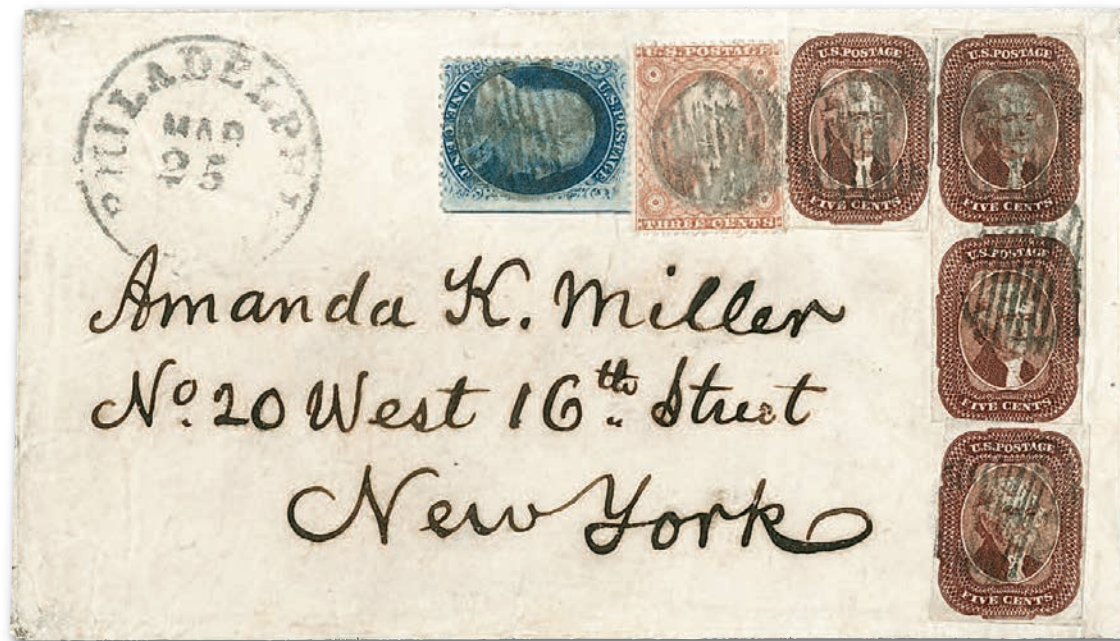 PHILADELPH
MAR
25
U.S. POSTAGE
ONE CENT
U.S. POSTAGE
THREE CENTS
U.S. POSTAGE
FIVE CENTS
U.S. POSTAGE
FIVE CENTS
U.S. POSTAGE
FIVE CENTS
U.S. POSTAGE
FIVE CENTS
Amanda K. Miller
No. 20 West 16th. Street
New York